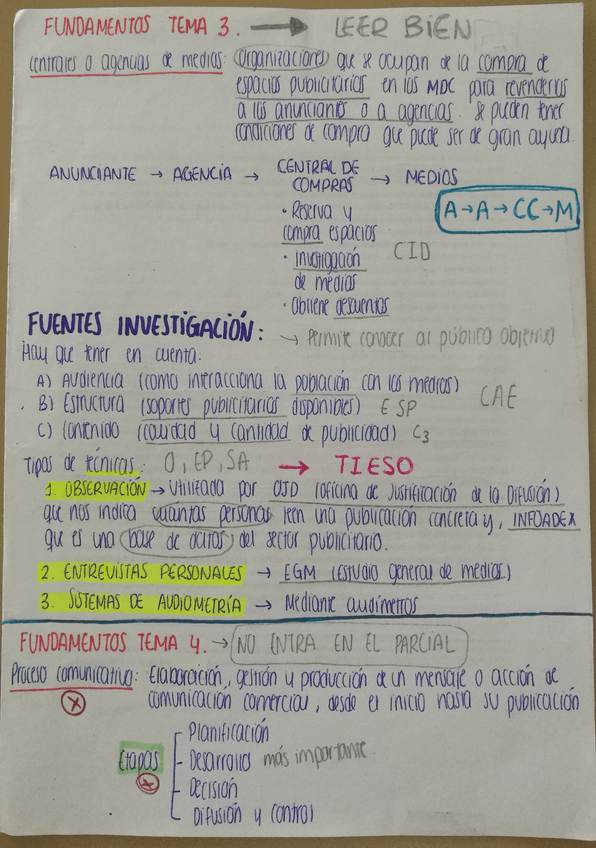 FUNDAMENTOS TEMA 3. → LEER BIEN
Centrales o agencias de medios: organizaciones que se ocupan de la compra de
espacios publicitarios en los MDC para revenderlos
a los anunciantes o a agencias. Se pueden tener
condiciones de compra que puede ser de gran ayuda.
ANUNCIANTE → AGENCIA → CENTRAL DE COMPRAS → MEDIOS
A→A→CC→M
· Reserva y
compra espacios
· Investigación
de medios
CID
· Obtiene descuentos
FUENTES INVESTIGACIÓN: → Permite conocer al público objetivo
Hay que tener en cuenta:
A) Audiencia (como interacciona la población con los medios)
B) Estructura (soportes publicitarios disponibles) ESP
CAE
C) Contenido (calidad y cantidad de publicidad) C3
Tipos de técnicas: O, EP, SA → TIESO
1. OBSERVACIÓN → Utilizada por OJD (oficina de Justificación de la Difusión)
que nos indica cuantas personas leen una publicación concreta y, INFOADEX
que es una base de datos del sector publicitario.
2. ENTREVISTAS PERSONALES → EGM (Estudio general de medios)
3. SISTEMAS DE AUDIOMETRÍA → Mediante audímetros
FUNDAMENTOS TEMA 4. → NO ENTRA EN EL PARCIAL
Proceso comunicativo: Elaboración, gestión y producción de un mensaje o acción de
comunicación comercial, desde el inicio hasta su publicación
Etapas
- Planificación
- Desarrollo más importante.
- Decisión
- Difusión y control